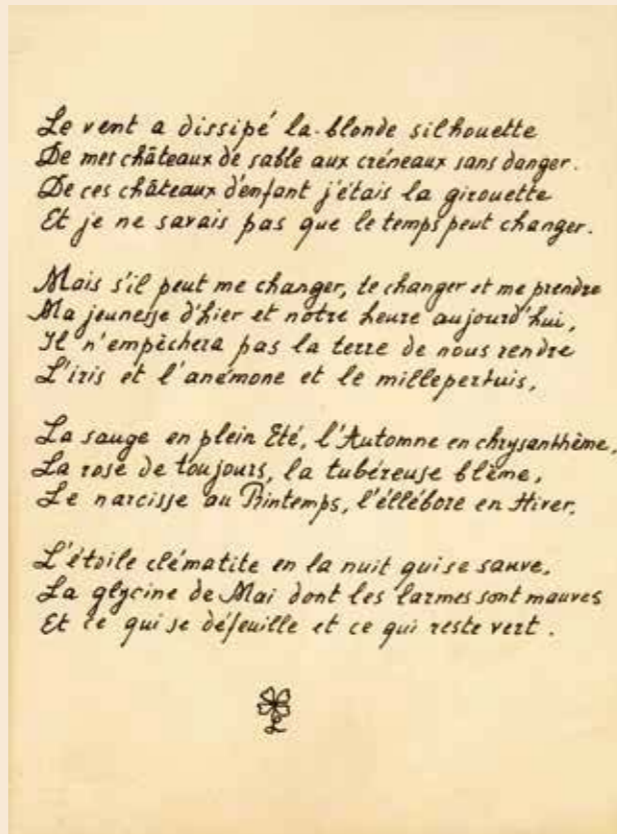 Le vent a dissipé la blonde silhouette
De mes châteaux de sable aux créneaux sans danger.
De ces châteaux d'enfant j'étais la girouette
Et je ne savais pas que le temps peut changer.
Mais s'il peut me changer, te changer et me prendre
Ma jeunesse d'hier et notre heure aujourd'hui,
Il n'empêchera pas la terre de nous rendre
L'iris et l'anémone et le millepertuis,
La sauge en plein Eté, l'Automne en chrysanthème,
La rose de toujours, la tubéreuse blème,
Le narcisse au Printemps, l'éllébore en Hiver,
L'étoile clématite en la nuit qui se sauve,
La glycine de Mai dont les larmes sont mauves
Et ce qui se défeuille et ce qui reste vert.
L